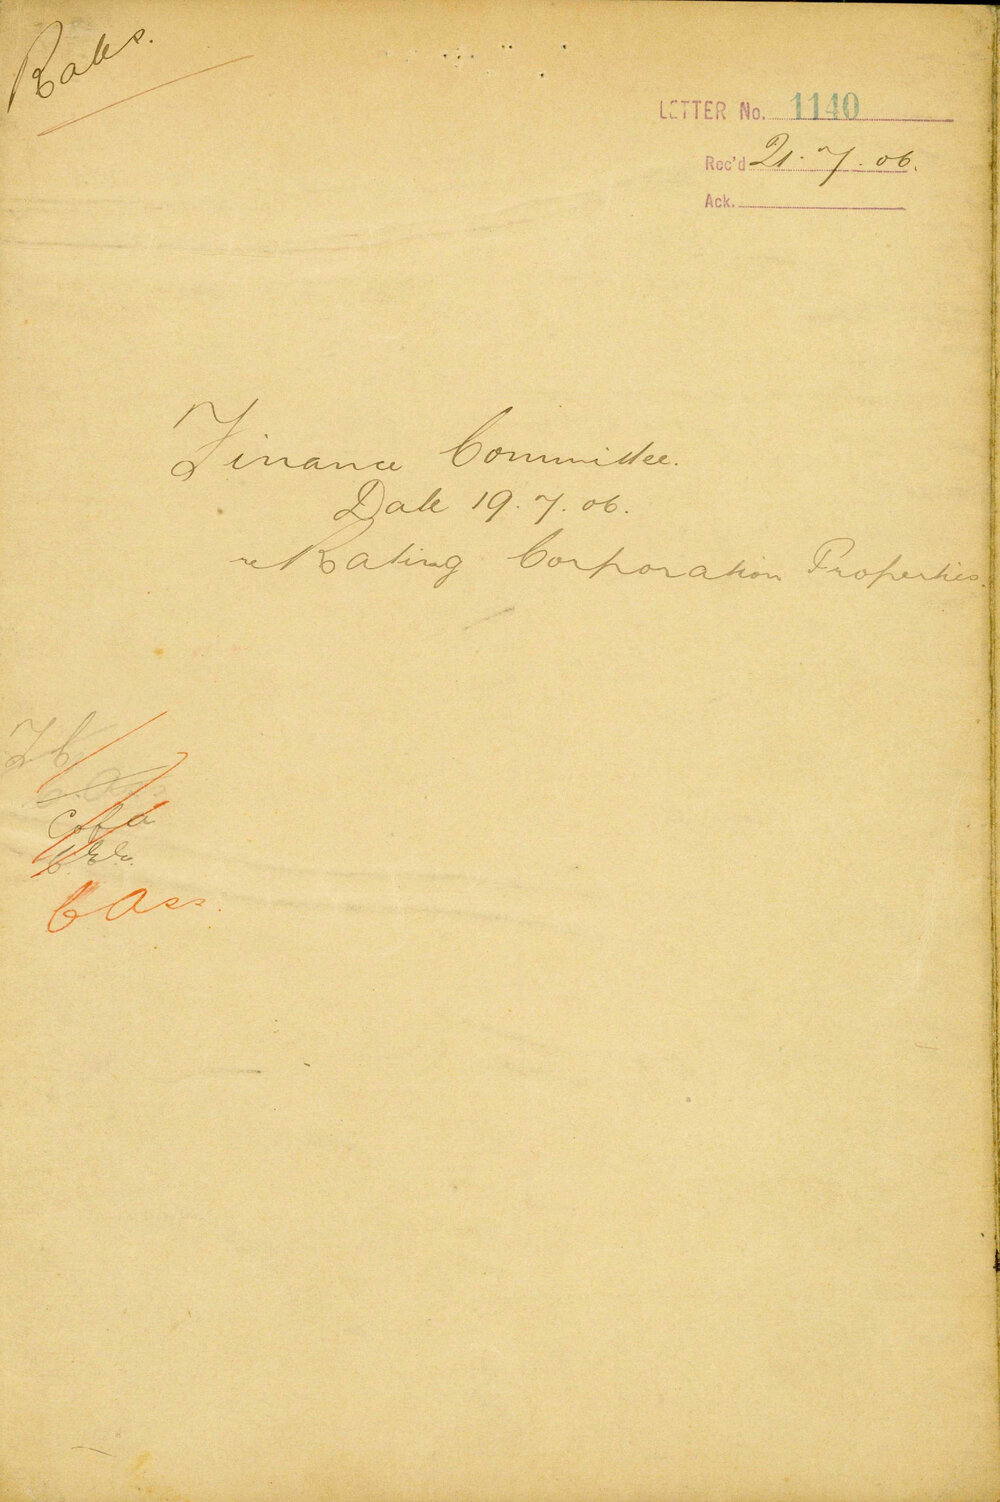 Rates.
LETTER No. 1140
Rec'd 21.7.06.
Ack.
Finance Committee.
Date 19.7.06.
re Rating Corporation Properties.
F C
C of A
C Ass.